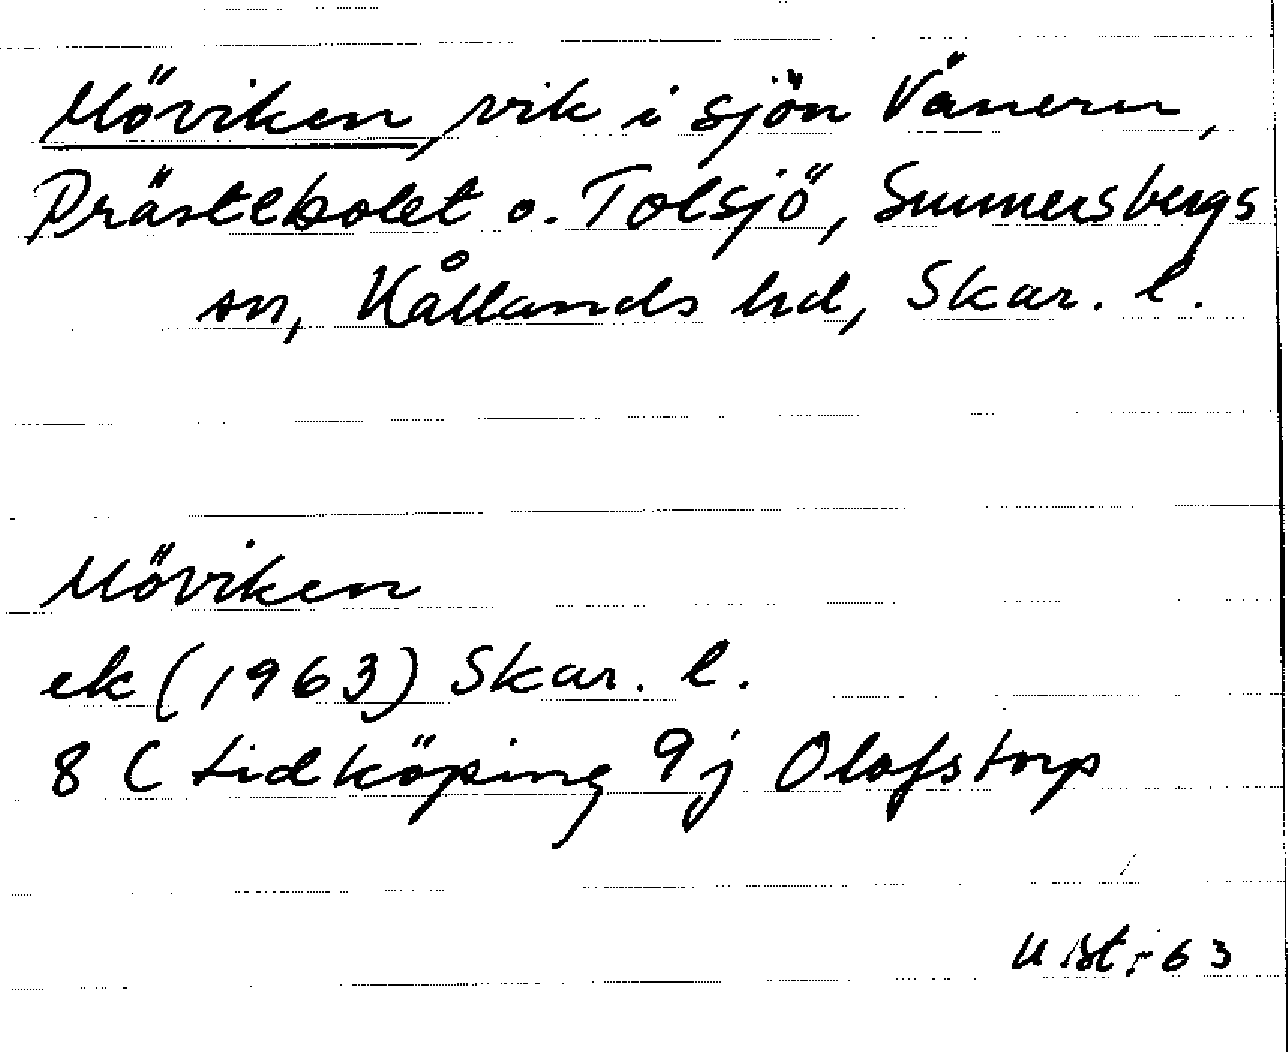 Möviken, vik i sjön Vänern,
Prästebolet o. Tolsjö, Sunnersbergs
sn, Kållands hd, Skar. l.
Möviken
ek (1963) Skar. l.
8 C Lidköping 9j Olofstorp
63